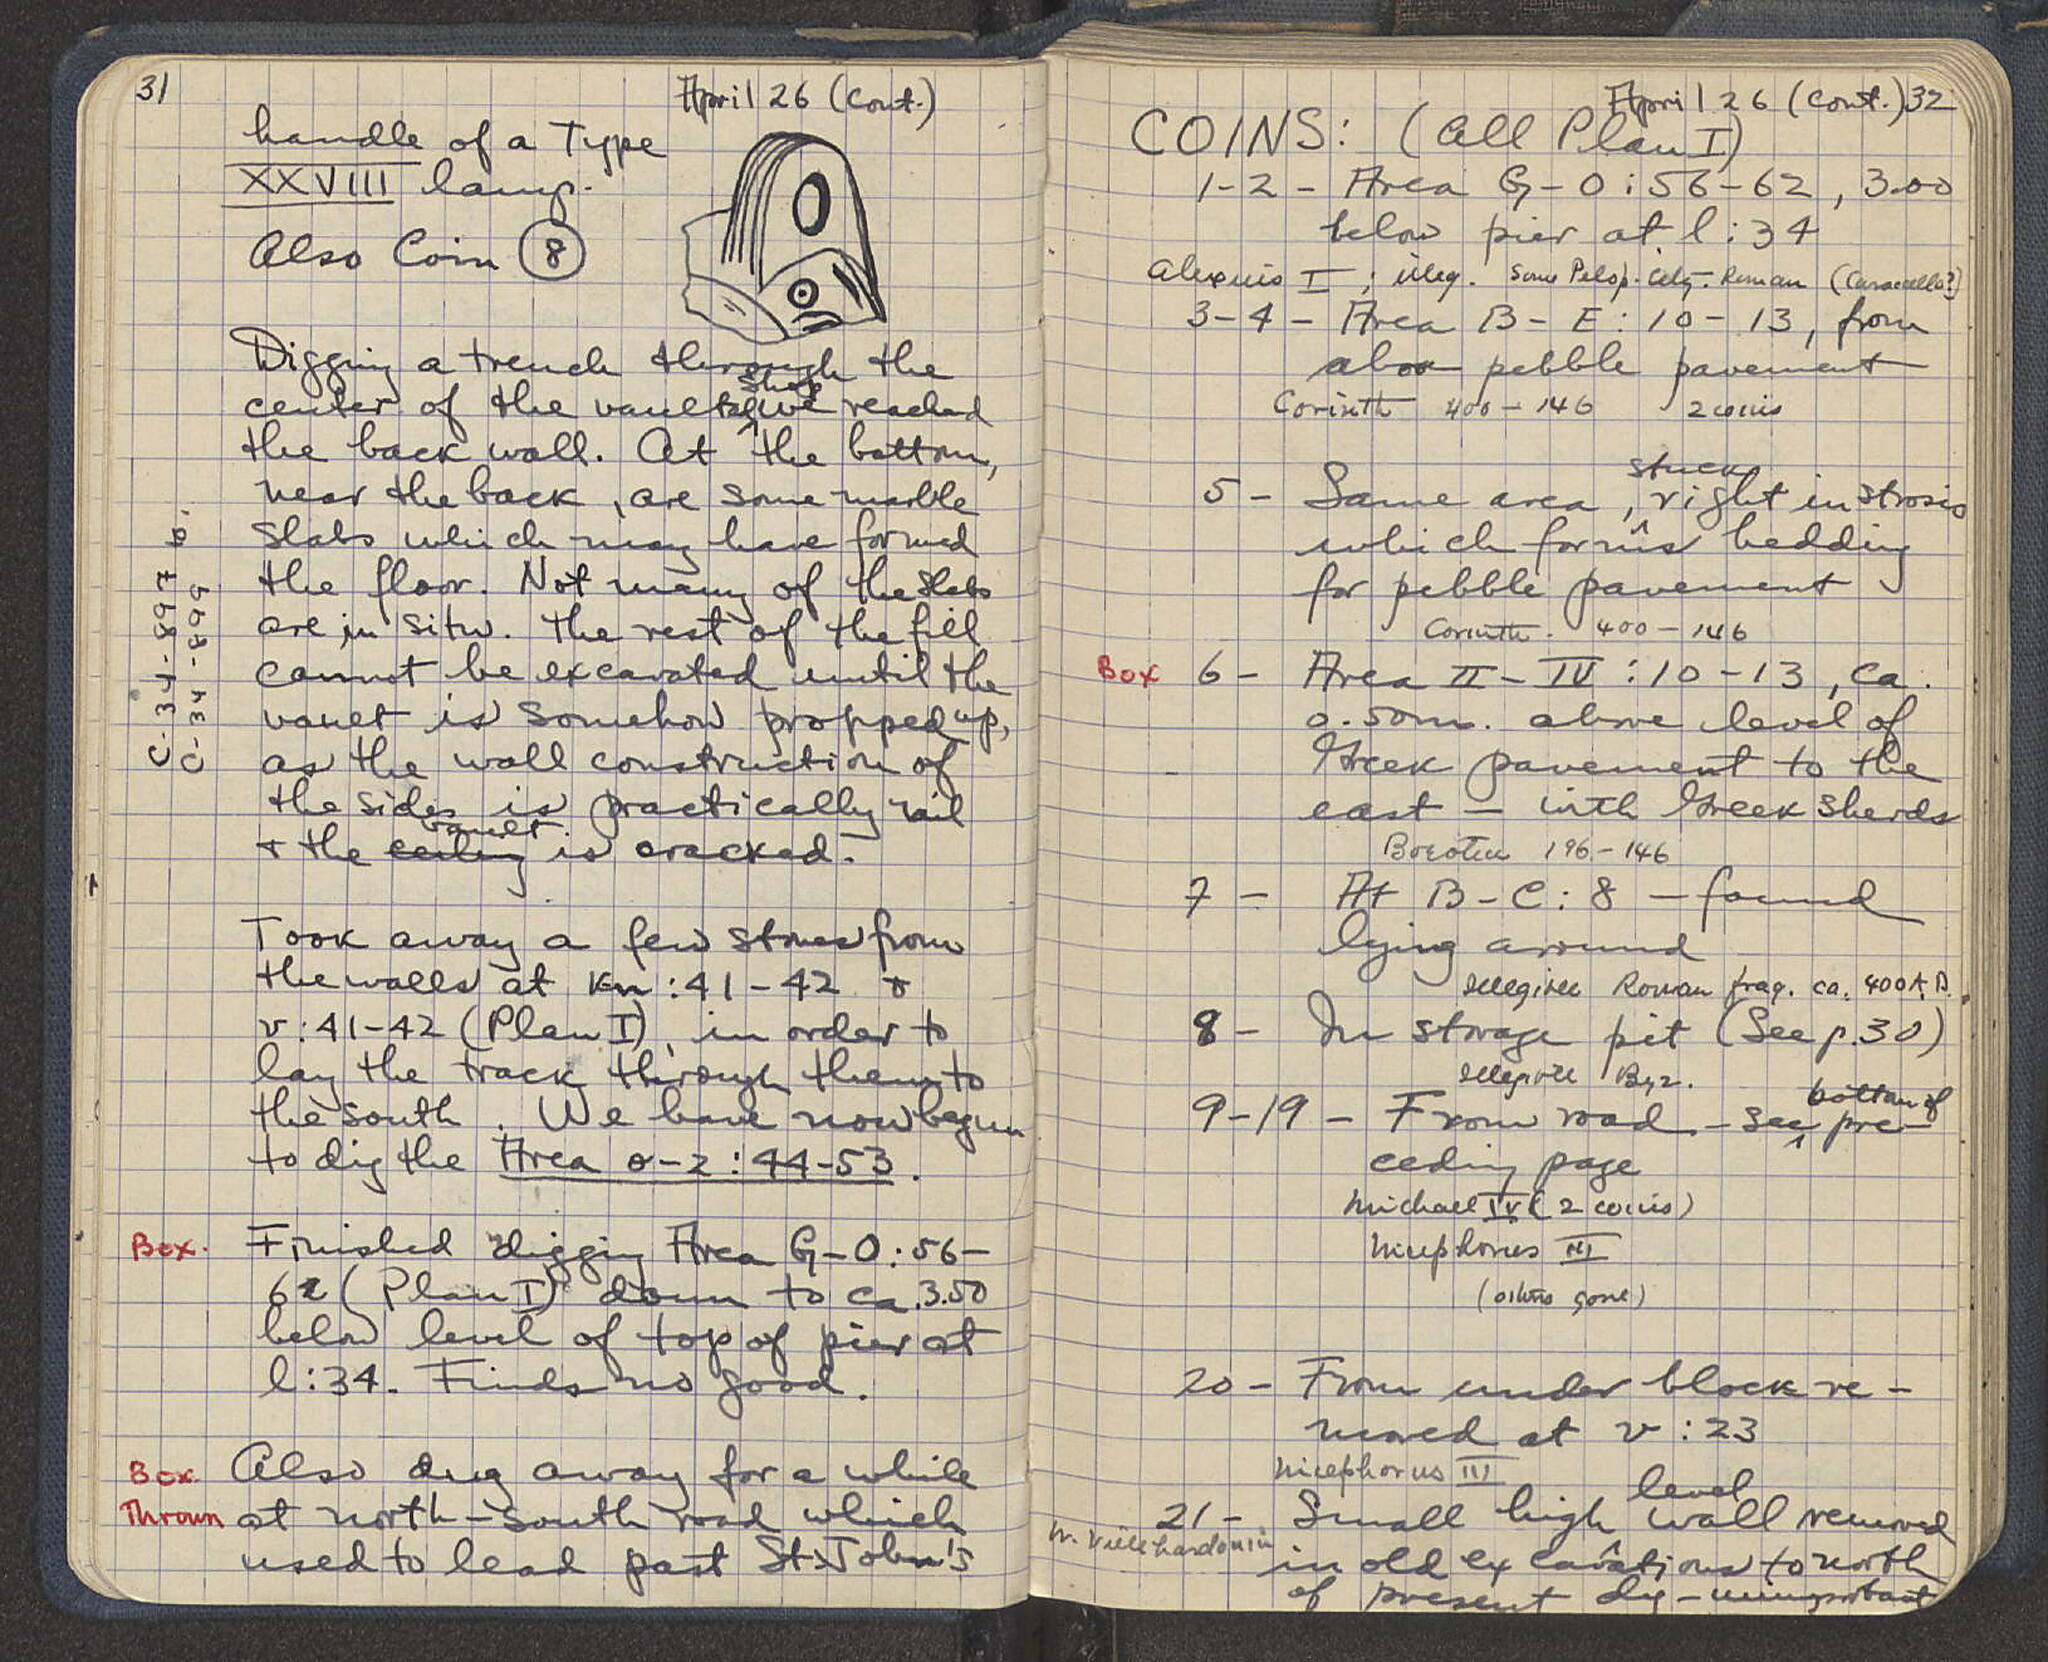 31
April 26 (cont.)
handle of a Type
XXVIII lamp.
Also Coin 8
Digging a trench through the
center of the vaulted shop we reached
the back wall. At the bottom,
near the back, are some marble
slabs which may have formed
the floor. Not many of the slabs
are in situ. The rest of the fill
cannot be excavated until the
vault is somehow propped up,
as the wall construction of
the sides is practically nil
+ the ceiling vault is cracked.
C-34-897 b.
C-34-899
Took away a few stones from
the walls at Kn:41-42 &
v:41-42 (Plan I), in order to
lay the track through them to
the south. We have now begun
to dig the Area o-z:44-53.
Box. Finished digging Area G-O:56-
62 (Plan I) down to ca. 3.50
below level of top of pier at
l:34. Finds no good.
Box Also dug away for a while
Thrown at north-south road which
used to lead past St. John's
April 26 (cont.) 32
COINS: (All Plan I)
1-2 - Area G-O:56-62, 3.00
below pier at l:34
Alexius I; illeg. Some Pelop. city - Roman (Caracalla?)
3-4 - Area B-E:10-13, from
above pebble pavement
Corinth 400-146 2 coins
5 - Same area, stuck right in strosis
which forms bedding
for pebble pavement
Corinth. 400-146
Box 6 - Area II-IV:10-13, ca.
0.50m. above level of
Greek pavement to the
east - with Greek sherds
Boeotia 196-146
7 - At B-C:8 - found
lying around
illegible Roman frag. ca. 400 A.D.
8 - In storage pit (See p.30)
illegible Byz.
9-19 - From road - see bottom of pre-
ceding page
Michael IV (2 coins)
Nicephorus III
(others gone)
20 - From under block re-
moved at v:23
Nicephorus III
21 - Small high level wall removed
W. Villehardouin in old excavations to north
of present dig - unimportant